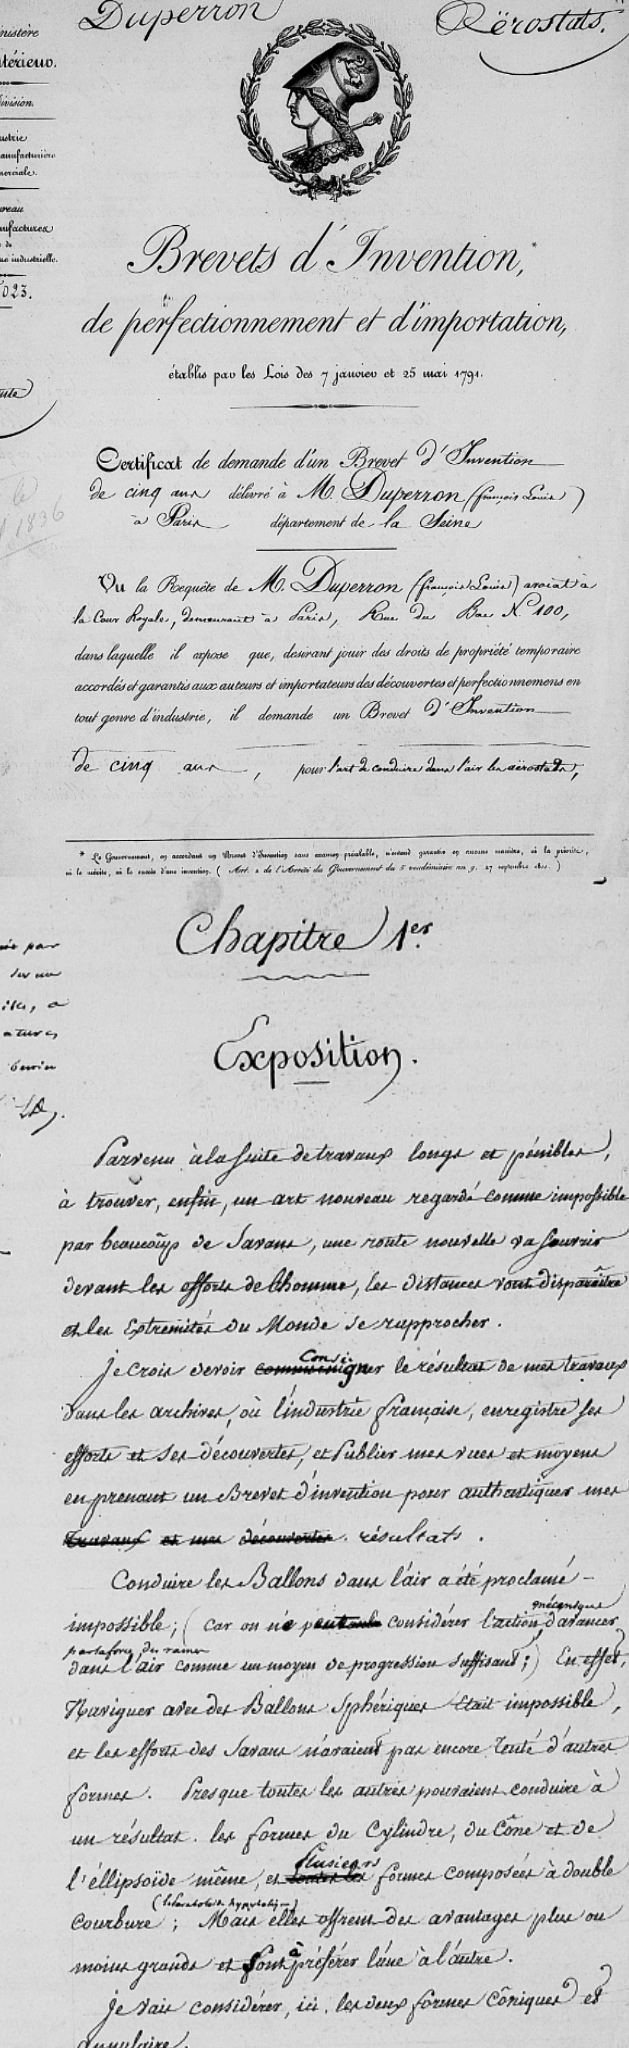 Duperron
Aërostats.
nistère
térieur.
ivision.
ustrie
anufacturière
merciale.
ureau
nufactures
de
ue industrielle.
023.
1836
Brevets d'Invention,*
de perfectionnement et d'importation,
établis par les Lois des 7 janvier et 25 mai 1791.
Certificat de demande d'un Brevet d'Invention
de cinq ans délivré à M. Duperron (françois Louis)
à Paris département de la Seine
Vu la Requête de M. Duperron (françois Louis) avocat à
la Cour Royale, demeurant à Paris, Rue du Bac N° 100,
dans laquelle il expose que, desirant jouir des droits de propriété temporaire
accordés et garantis aux auteurs et importateurs des découvertes et perfectionnemens en
tout genre d'industrie, il demande un Brevet d'Invention
de cinq ans, pour l'art de conduire dans l'air les aërostats,
* Le Gouvernement, en accordant un Brevet d'Invention sans examen préalable, n'entend garantir en aucune manière, ni la priorité,
ni le mérite, ni le succès d'une invention. ( Art. 2 de l'Arrêté du Gouvernement du 5 vendémiaire an 9, 27 septembre 1800. )
Chapitre 1er.
Exposition.
Parvenu à la suite de travaux longs et pénibles,
à trouver, enfin, un art nouveau regardé comme impossible
par beaucoup de Savans, une route nouvelle va s'ouvrir
devant les efforts de l'homme, les distances vont disparaître
et les Extrémités du Monde se rapprocher.
Je crois devoir consigner le résultat de mes travaux
dans les archives, où l'industrie française, enregistre ses
efforts et ses découvertes, et Publier mes vues et moyens
en prenant un Brevet d'invention pour authentiquer mes
travaux et mes découvertes. résultats.
Conduire les Ballons dans l'air a été proclamé
impossible; (car on ne considérer l'action mécanique d'avancer
par la force des rames
dans l'air comme un moyen de progression suffisant;) En effet,
Naviguer avec des Ballons Sphériques était impossible,
et les efforts des Savans n'avaient pas encore tenté d'autres
formes. Presque toutes les autres pouvaient conduire à
un résultat. les formes du Cylindre, du Cône et de
l'éllipsoïde même, et plusieurs formes composées à double
courbure; Mais elles offrent des avantages plus ou
moins grands et sont à préférer l'une à l'autre.
Je vais considérer, ici, les deux formes Côniques et
annulaire.